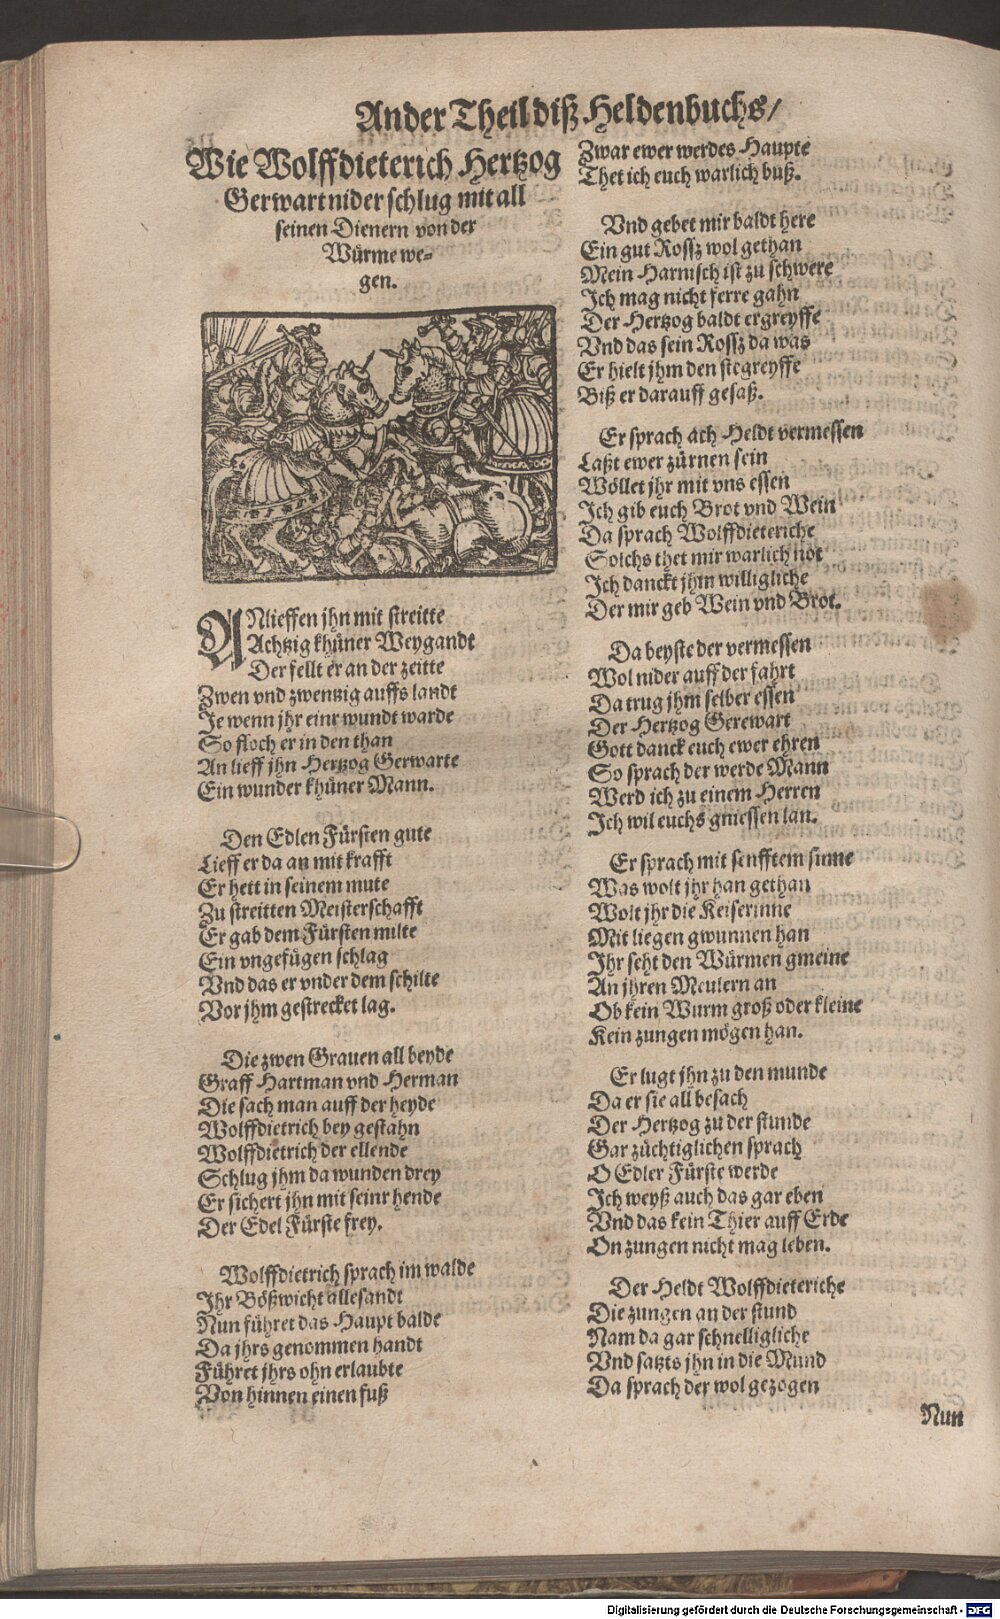 Ander Theil diß Heldenbuchs/
Wie Wolffdieterich Hertzog
Gerwart nider schlug mit all
seinen Dienern von der
Würme we-
gen.
ANlieffen jhn mit streitte
Achtzig khüner Weygandt
Der fellt er an der zeitte
Zwen vnd zwenzig auffs landt
Je wenn jhr einr wundt warde
So floch er in den than
An lieff jhn Hertzog Gerwarte
Ein wunder khüner Mann.
Den Edlen Fürsten gute
Lieff er da an mit krafft
Er hett in seinem mute
Zu streitten Meisterschafft
Er gab dem Fürsten milte
Ein vngefügen schlag
Vnd das er vnder dem schilte
Vor jhm gestrecket lag.
Die zwen Grauen all beyde
Graff Hartman vnd Herman
Die sach man auff der heyde
Wolffdietrich bey gestahn
Wolffdietrich der ellende
Schlug jhm da wunden drey
Er sichert jhn mit seinr hende
Der Edel Fürste frey.
Wolffdietrich sprach im walde
Jhr Bößwicht allesandt
Nun führet das Haupt balde
Da jhrs genommen handt
Führet jhrs ohn erlaubte
Von hinnen einen fuß
Zwar ewer werdes Haupte
Thet ich euch warlich buß.
Vnd gebet mir baldt here
Ein gut Rossz wol gethan
Mein Harnisch ist zu schwere
Jch mag nicht ferre gahn
Der Hertzog baldt ergreyffe
Vnd das sein Rossz da was
Er hielt jhm den stegreyffe
Biß er darauff gesaß.
Er sprach ach Heldt vermessen
Laßt ewer zürnen sein
Wöllet jhr mit vns essen
Jch gib euch Brot vnd Wein
Da sprach Wolffdieteriche
Solchs thet mir warlich not
Jch danckt jhm willigliche
Der mir geb Wein vnd Brot.
Da beyste der vermessen
Wol nider auff der fahrt
Da trug jhm selber essen
Der Hertzog Gerewart
Gott danck euch ewer ehren
So sprach der werde Mann
Werd ich zu einem Herren
Jch wil euchs gniessen lan.
Er sprach mit senfftem sinne
Was wolt jhr han gethan
Wolt jhr die Keiserinne
Mit liegen gwunnen han
Jhr seht den Würmen gmeine
An jhren Meulern an
Ob kein Wurm groß oder kleine
Kein zungen mögen han.
Er lugt jhn zu den munde
Da er sie all besach
Der Hertzog zu der stunde
Gar züchtiglichen sprach
O Edler Fürste werde
Jch weyß auch das gar eben
Vnd das kein Thier auff Erde
On zungen nicht mag leben.
Der Heldt Wolffdieteriche
Die zungen an der stund
Nam da gar schnelligliche
Vnd satzts jhn in die Mund
Da sprach der wol gezogen
Nun
Digitalisierung gefördert durch die Deutsche Forschungsgemeinschaft - DFG